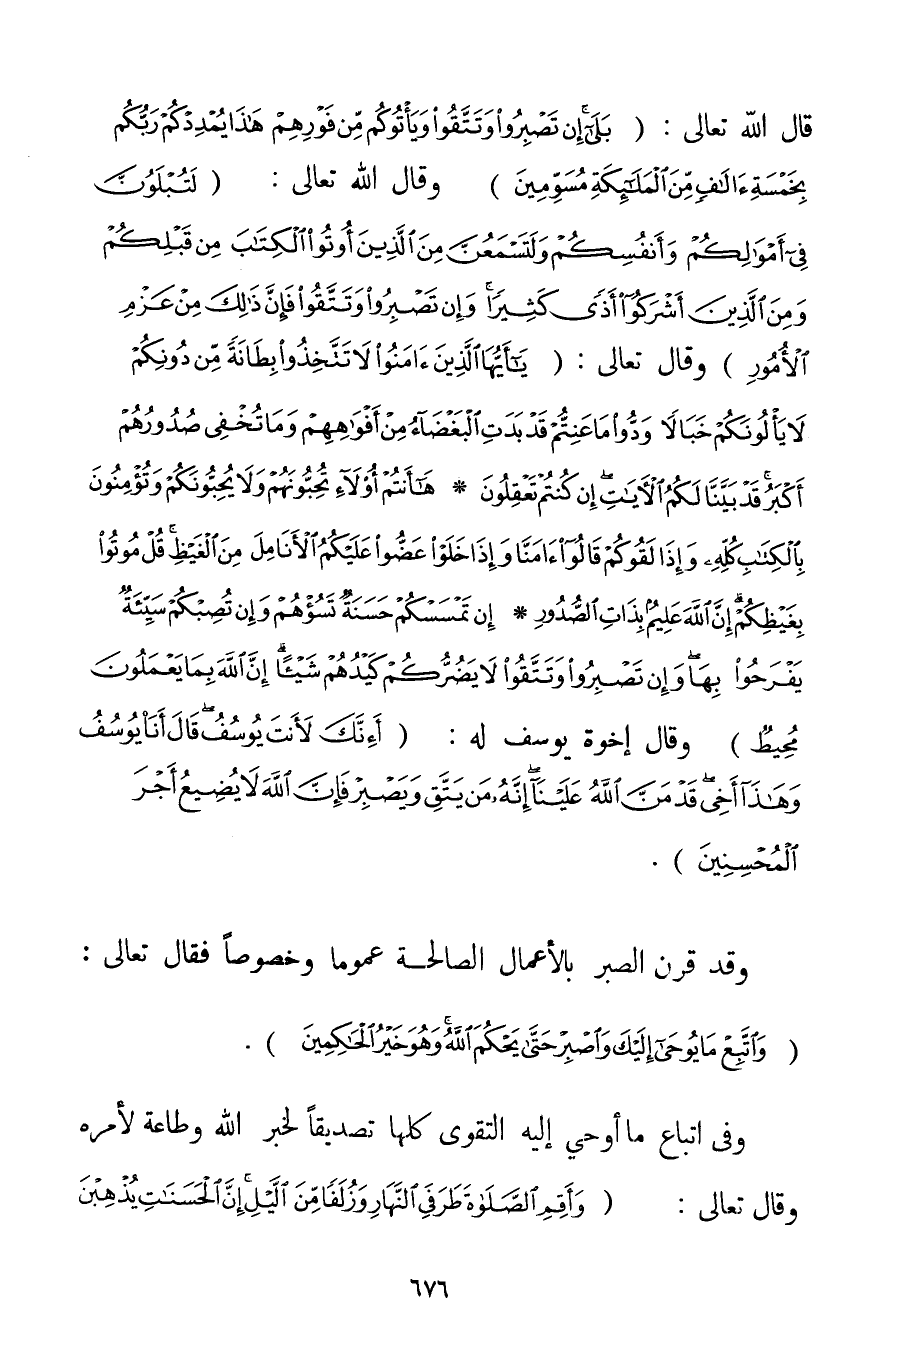 قال الله تعالى : ( بَلَىٰٓ إِن تَصْبِرُوا۟ وَتَتَّقُوا۟ وَيَأْتُوكُم مِّن فَوْرِهِمْ هَٰذَا يُمْدِدْكُمْ رَبُّكُم
بِخَمْسَةِ ءَالَٰفٍ مِّنَ ٱلْمَلَٰٓئِكَةِ مُسَوِّمِينَ ) وقال الله تعالى : ( لَتُبْلَوُنَّ
فِىٓ أَمْوَٰلِكُمْ وَأَنفُسِكُمْ وَلَتَسْمَعُنَّ مِنَ ٱلَّذِينَ أُوتُوا۟ ٱلْكِتَٰبَ مِن قَبْلِكُمْ
وَمِنَ ٱلَّذِينَ أَشْرَكُوٓا۟ أَذًى كَثِيرًا ۚ وَإِن تَصْبِرُوا۟ وَتَتَّقُوا۟ فَإِنَّ ذَٰلِكَ مِنْ عَزْمِ
ٱلْأُمُورِ ) وقال تعالى : ( يَٰٓأَيُّهَا ٱلَّذِينَ ءَامَنُوا۟ لَا تَتَّخِذُوا۟ بِطَانَةً مِّن دُونِكُمْ
لَا يَأْلُونَكُمْ خَبَالًا وَدُّوا۟ مَا عَنِتُّمْ قَدْ بَدَتِ ٱلْبَغْضَآءُ مِنْ أَفْوَٰهِهِمْ وَمَا تُخْفِى صُدُورُهُمْ
أَكْبَرُ ۚ قَدْ بَيَّنَّا لَكُمُ ٱلْأَيَٰتِ ۖ إِن كُنتُمْ تَعْقِلُونَ * هَٰٓأَنتُمْ أُو۟لَآءِ تُحِبُّونَهُمْ وَلَا يُحِبُّونَكُمْ وَتُؤْمِنُونَ
بِٱلْكِتَٰبِ كُلِّهِۦ وَإِذَا لَقُوكُمْ قَالُوٓا۟ ءَامَنَّا وَإِذَا خَلَوْا۟ عَضُّوا۟ عَلَيْكُمُ ٱلْأَنَامِلَ مِنَ ٱلْغَيْظِ ۚ قُلْ مُوتُوا۟
بِغَيْظِكُمْ ۗ إِنَّ ٱللَّهَ عَلِيمٌۢ بِذَاتِ ٱلصُّدُورِ * إِن تَمْسَسْكُمْ حَسَنَةٌ تَسُؤْهُمْ وَإِن تُصِبْكُمْ سَيِّئَةٌ
يَفْرَحُوا۟ بِهَا ۖ وَإِن تَصْبِرُوا۟ وَتَتَّقُوا۟ لَا يَضُرُّكُمْ كَيْدُهُمْ شَيْـًٔا ۗ إِنَّ ٱللَّهَ بِمَا يَعْمَلُونَ
مُحِيطٌ ) وقال إخوة يوسف له : ( أَءِنَّكَ لَأَنتَ يُوسُفُ ۖ قَالَ أَنَا۠ يُوسُفُ
وَهَٰذَآ أَخِى ۖ قَدْ مَنَّ ٱللَّهُ عَلَيْنَآ ۖ إِنَّهُۥ مَن يَتَّقِ وَيَصْبِرْ فَإِنَّ ٱللَّهَ لَا يُضِيعُ أَجْرَ
ٱلْمُحْسِنِينَ ) .
وقد قرن الصبر بالأعمال الصالحة عموما وخصوصاً فقال تعالى :
( وَٱتَّبِعْ مَا يُوحَىٰٓ إِلَيْكَ وَٱصْبِرْ حَتَّىٰ يَحْكُمَ ٱللَّهُ ۚ وَهُوَ خَيْرُ ٱلْحَٰكِمِينَ ) .
وفى اتباع ما أوحي إليه التقوى كلها تصديقاً لخبر الله وطاعة لأمره
وقال تعالى : ( وَأَقِمِ ٱلصَّلَوٰةَ طَرَفَىِ ٱلنَّهَارِ وَزُلَفًا مِّنَ ٱلَّيْلِ ۚ إِنَّ ٱلْحَسَنَٰتِ يُذْهِبْنَ
٦٧٦